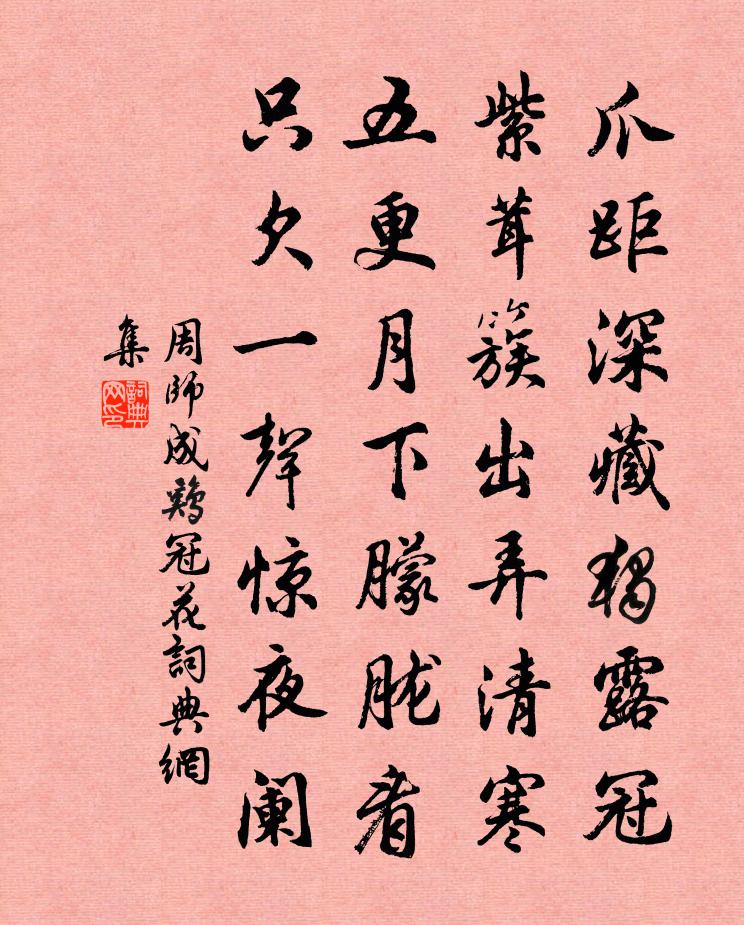 爪距深藏獨露冠
紫茸簇出弄清寒
五更月下朦朧看
只欠一聲惊夜阑
周師成鷄冠花詞典網
集
詞典网印